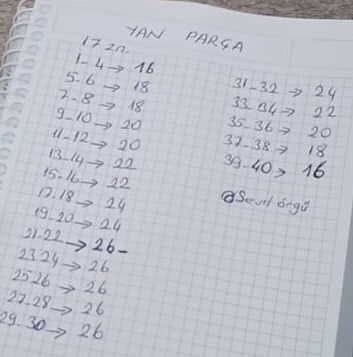 YAN PARÇA
17 zn.
1-4→16
5-6→18
7-8→18
9-10→20
11-12→20
13-14→22
15-16→22
17-18→24
19-20→24
21-22→26-
23 24→26
25 26→26
27-28→26
29-30→26
31-32→24
33-34→22
35-36→20
37-38→18
39-40→16
@Sevil örgü